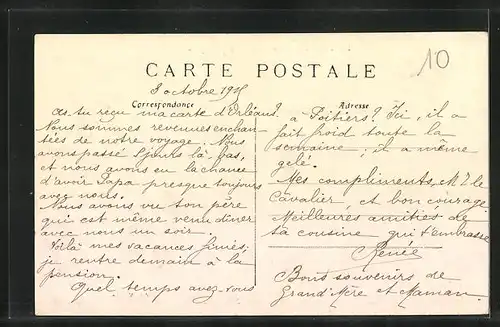 10
CARTE POSTALE
3 octobre 19
Correspondance
Adresse
As tu reçu ma carte d'Orléans?
Nous sommes revenues enchan-
tées de notre voyage. Nous
avons passé 8 jours là-bas,
et nous avons eu la chance
d'avoir Papa presque toujours
avec nous.
Nous avons vu ton père
qui est même venu dîner
avec nous un soir.
Voilà mes vacances finies,
je rentre demain à la
pension.
Quel temps avez-vous
à Poitiers? Ici, il a
fait froid toute la
semaine; il a même
gelé.
Mes compliments, M. le
Cavalier, et bon courage.
Meilleures amitiés de
ta cousine qui t'embrasse
Renée
Bons souvenirs de
Grand'Mère et Maman.